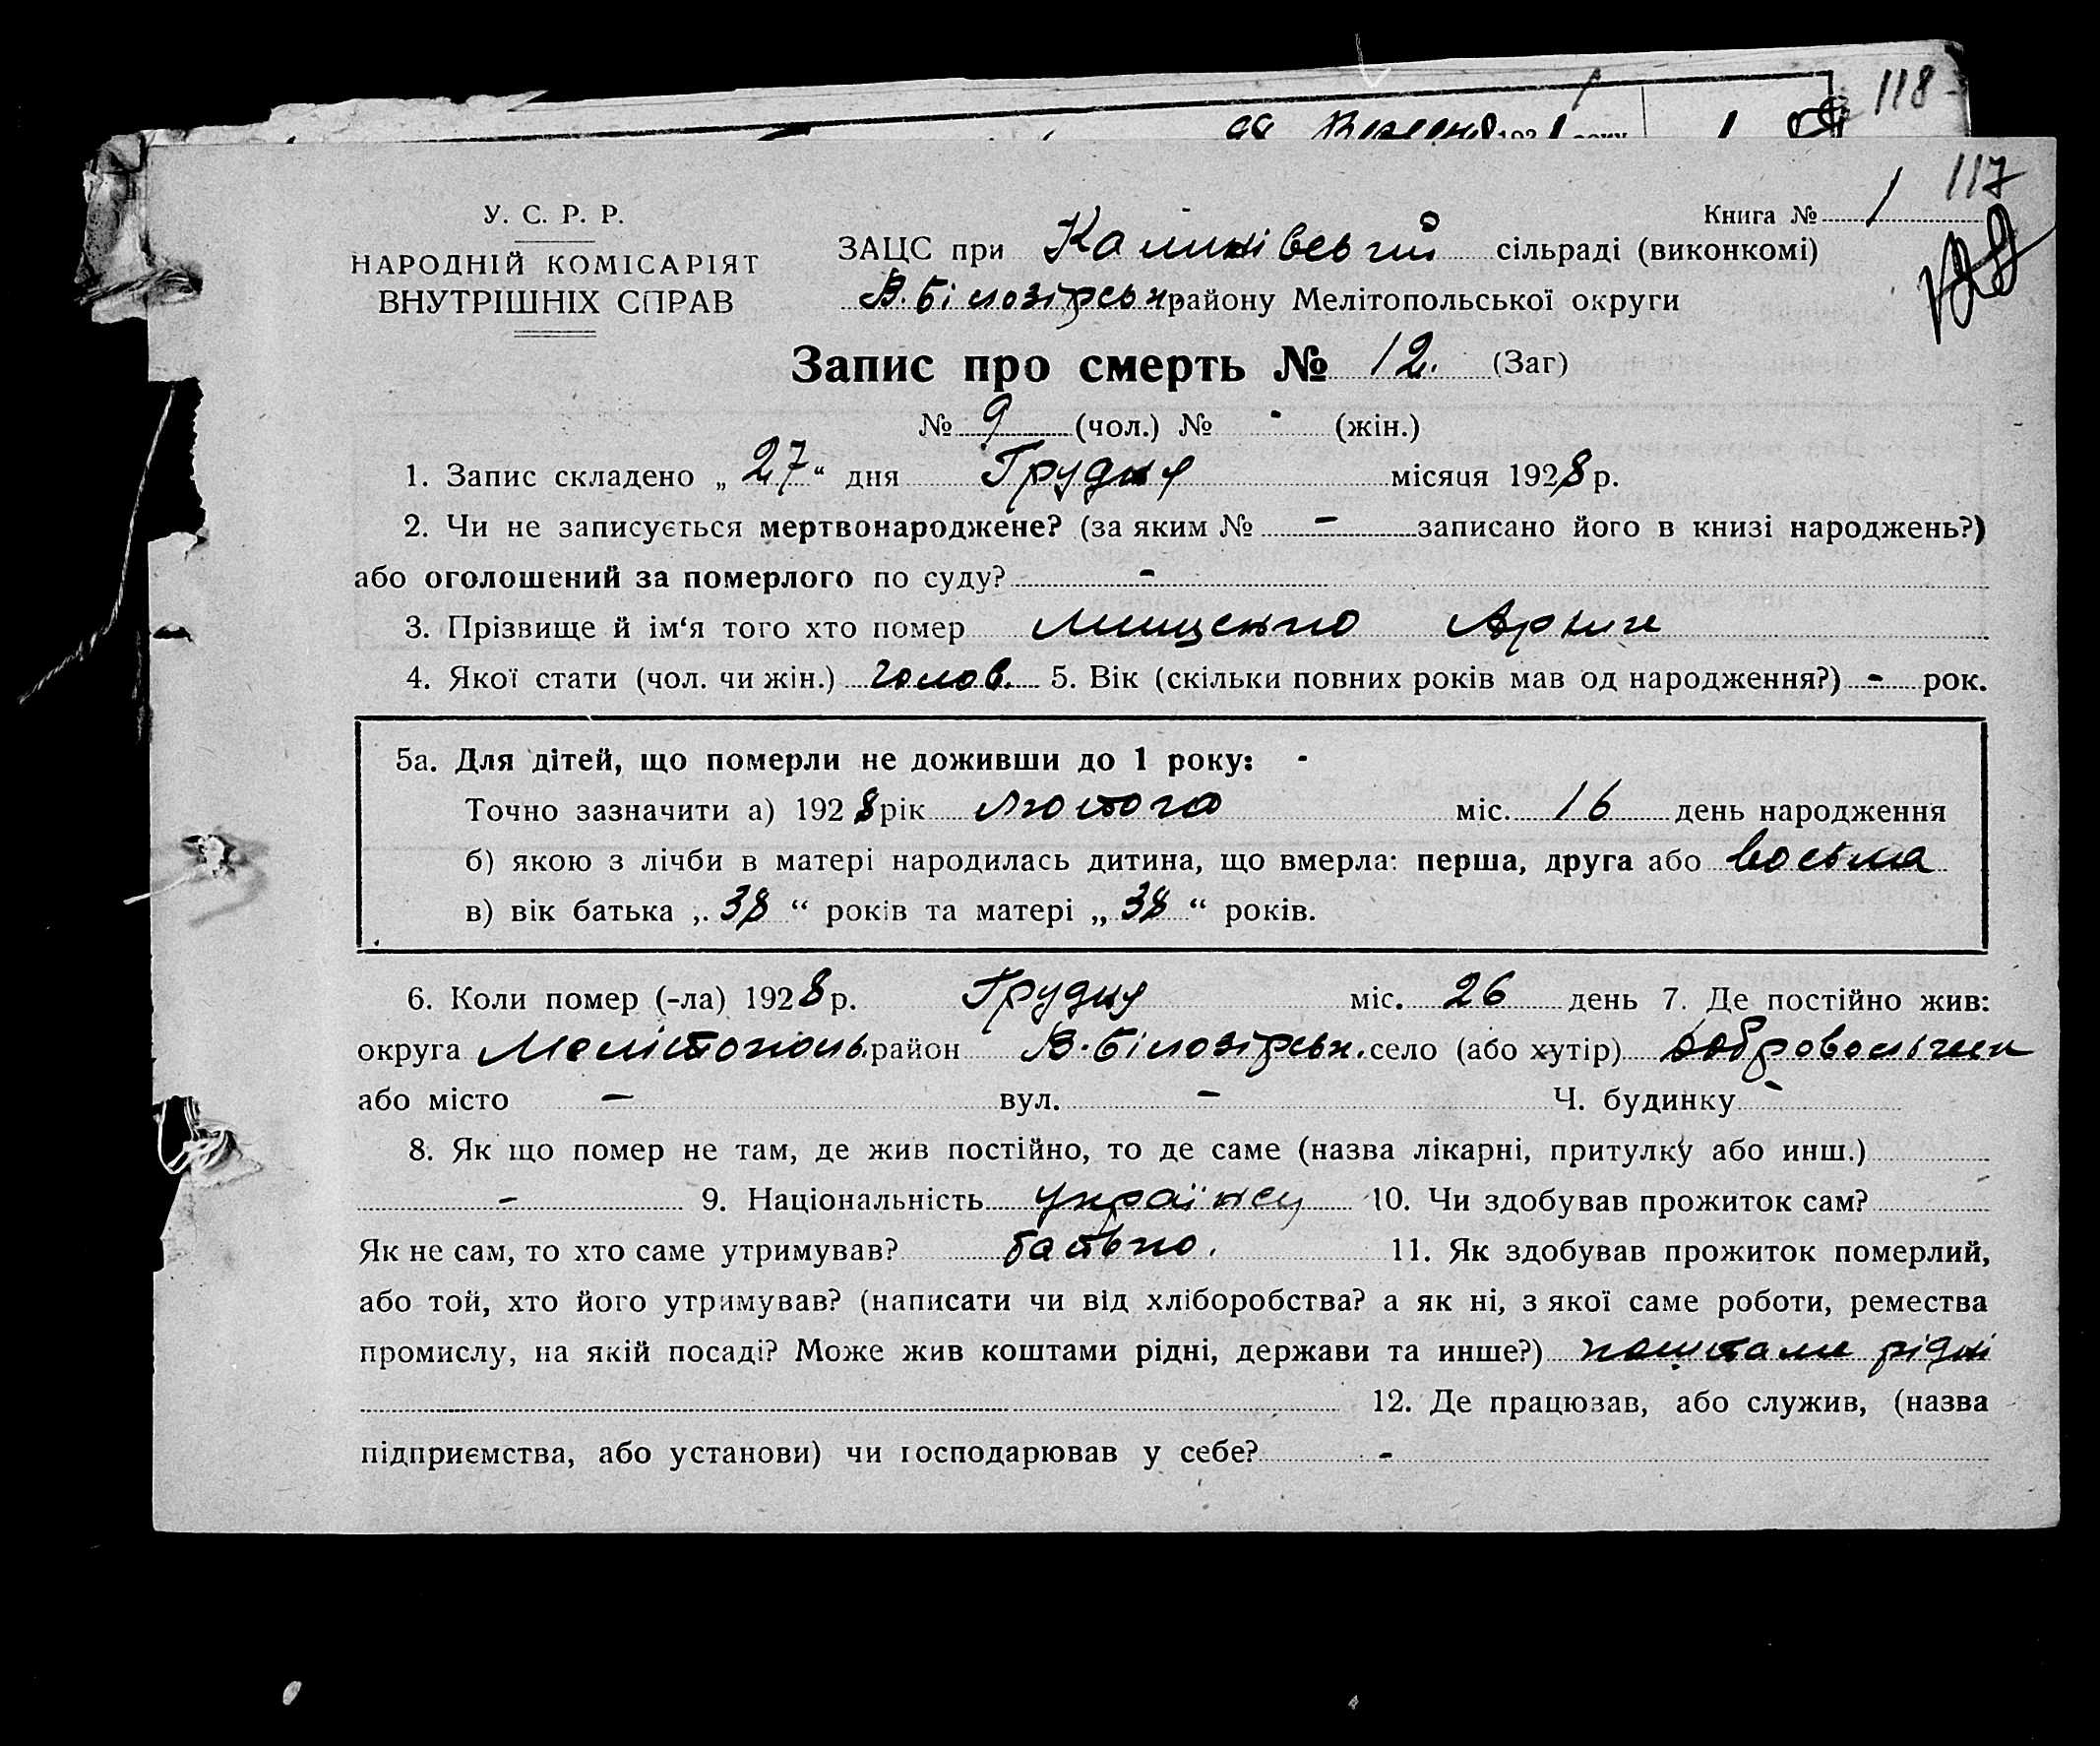 118
117
У. С. Р. Р.
Книга № 1
НАРОДНІЙ КОМІСАРІЯТ
ВНУТРІШНІХ СПРАВ
ЗАЦС при Калинівській сільраді (виконкомі)
В. Білозірськ. району Мелітопольської округи
Запис про смерть № 12. (Заг)
№ 9 (чол.) № - (жін.)
1. Запис складено „ 27 “ дня Грудня місяця 1928 р.
2. Чи не записується мертвонароджене? (за яким № - записано його в книзі народжень?)
або оголошений за померлого по суду? -
3. Прізвище й ім‘я того хто помер Мищенко
4. Якої стати (чол. чи жін.) чолов. 5. Вік (скільки повних років мав од народження?) - рок.
5а. Для дітей, що померли не доживши до 1 року: -
Точно зазначити а) 1928 рік лютого міс. 16 день народження
б) якою з лічби в матері народилась дитина, що вмерла: перша, друга або восьма
в) вік батька „ 38 “ років та матері „ 38 “ років.
6. Коли помер (-ла) 1928 р. Грудня міс. 26 день 7. Де постійно жив:
округа Мелітополь. район В. Білозірськ. село (або хутір)
або місто — вул. - Ч. будинку -
8. Як що помер не там, де жив постійно, то де саме (назва лікарні, притулку або инш.)
- 9. Національність 10. Чи здобував прожиток сам?
Як не сам, то хто саме утримував? батько. 11. Як здобував прожиток померлий,
або той, хто його утримував? (написати чи від хліборобства? а як ні, з якої саме роботи, ремества
промислу, на якій посаді? Може жив коштами рідні, держави та инше?) коштами рідні
12. Де працював, або служив, (назва
підприємства, або установи) чи господарював у себе? -